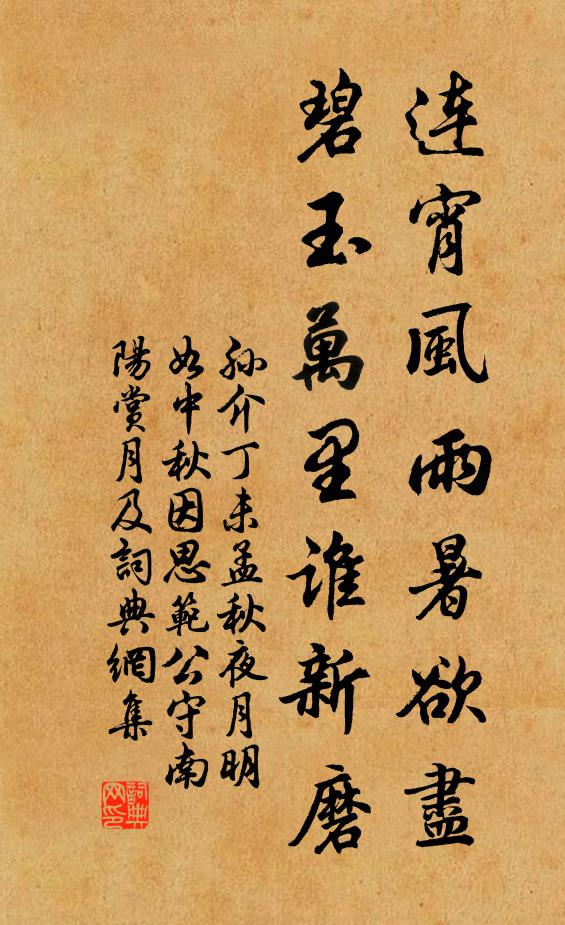 連宵風雨暑欲盡
碧玉萬里誰新磨
孫介丁未孟秋夜月明
如中秋因思範公守南
陽賞月及詞典網集
詞典
网印